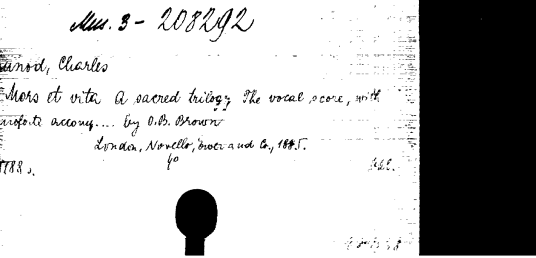 Mus. 3 - 208292
unod, Charles
Mors et vita A sacred trilogy The vocal score, with
accomp.... by O.B. Brown
London, Novello, ewer and Co., 1885.
40
188 s.